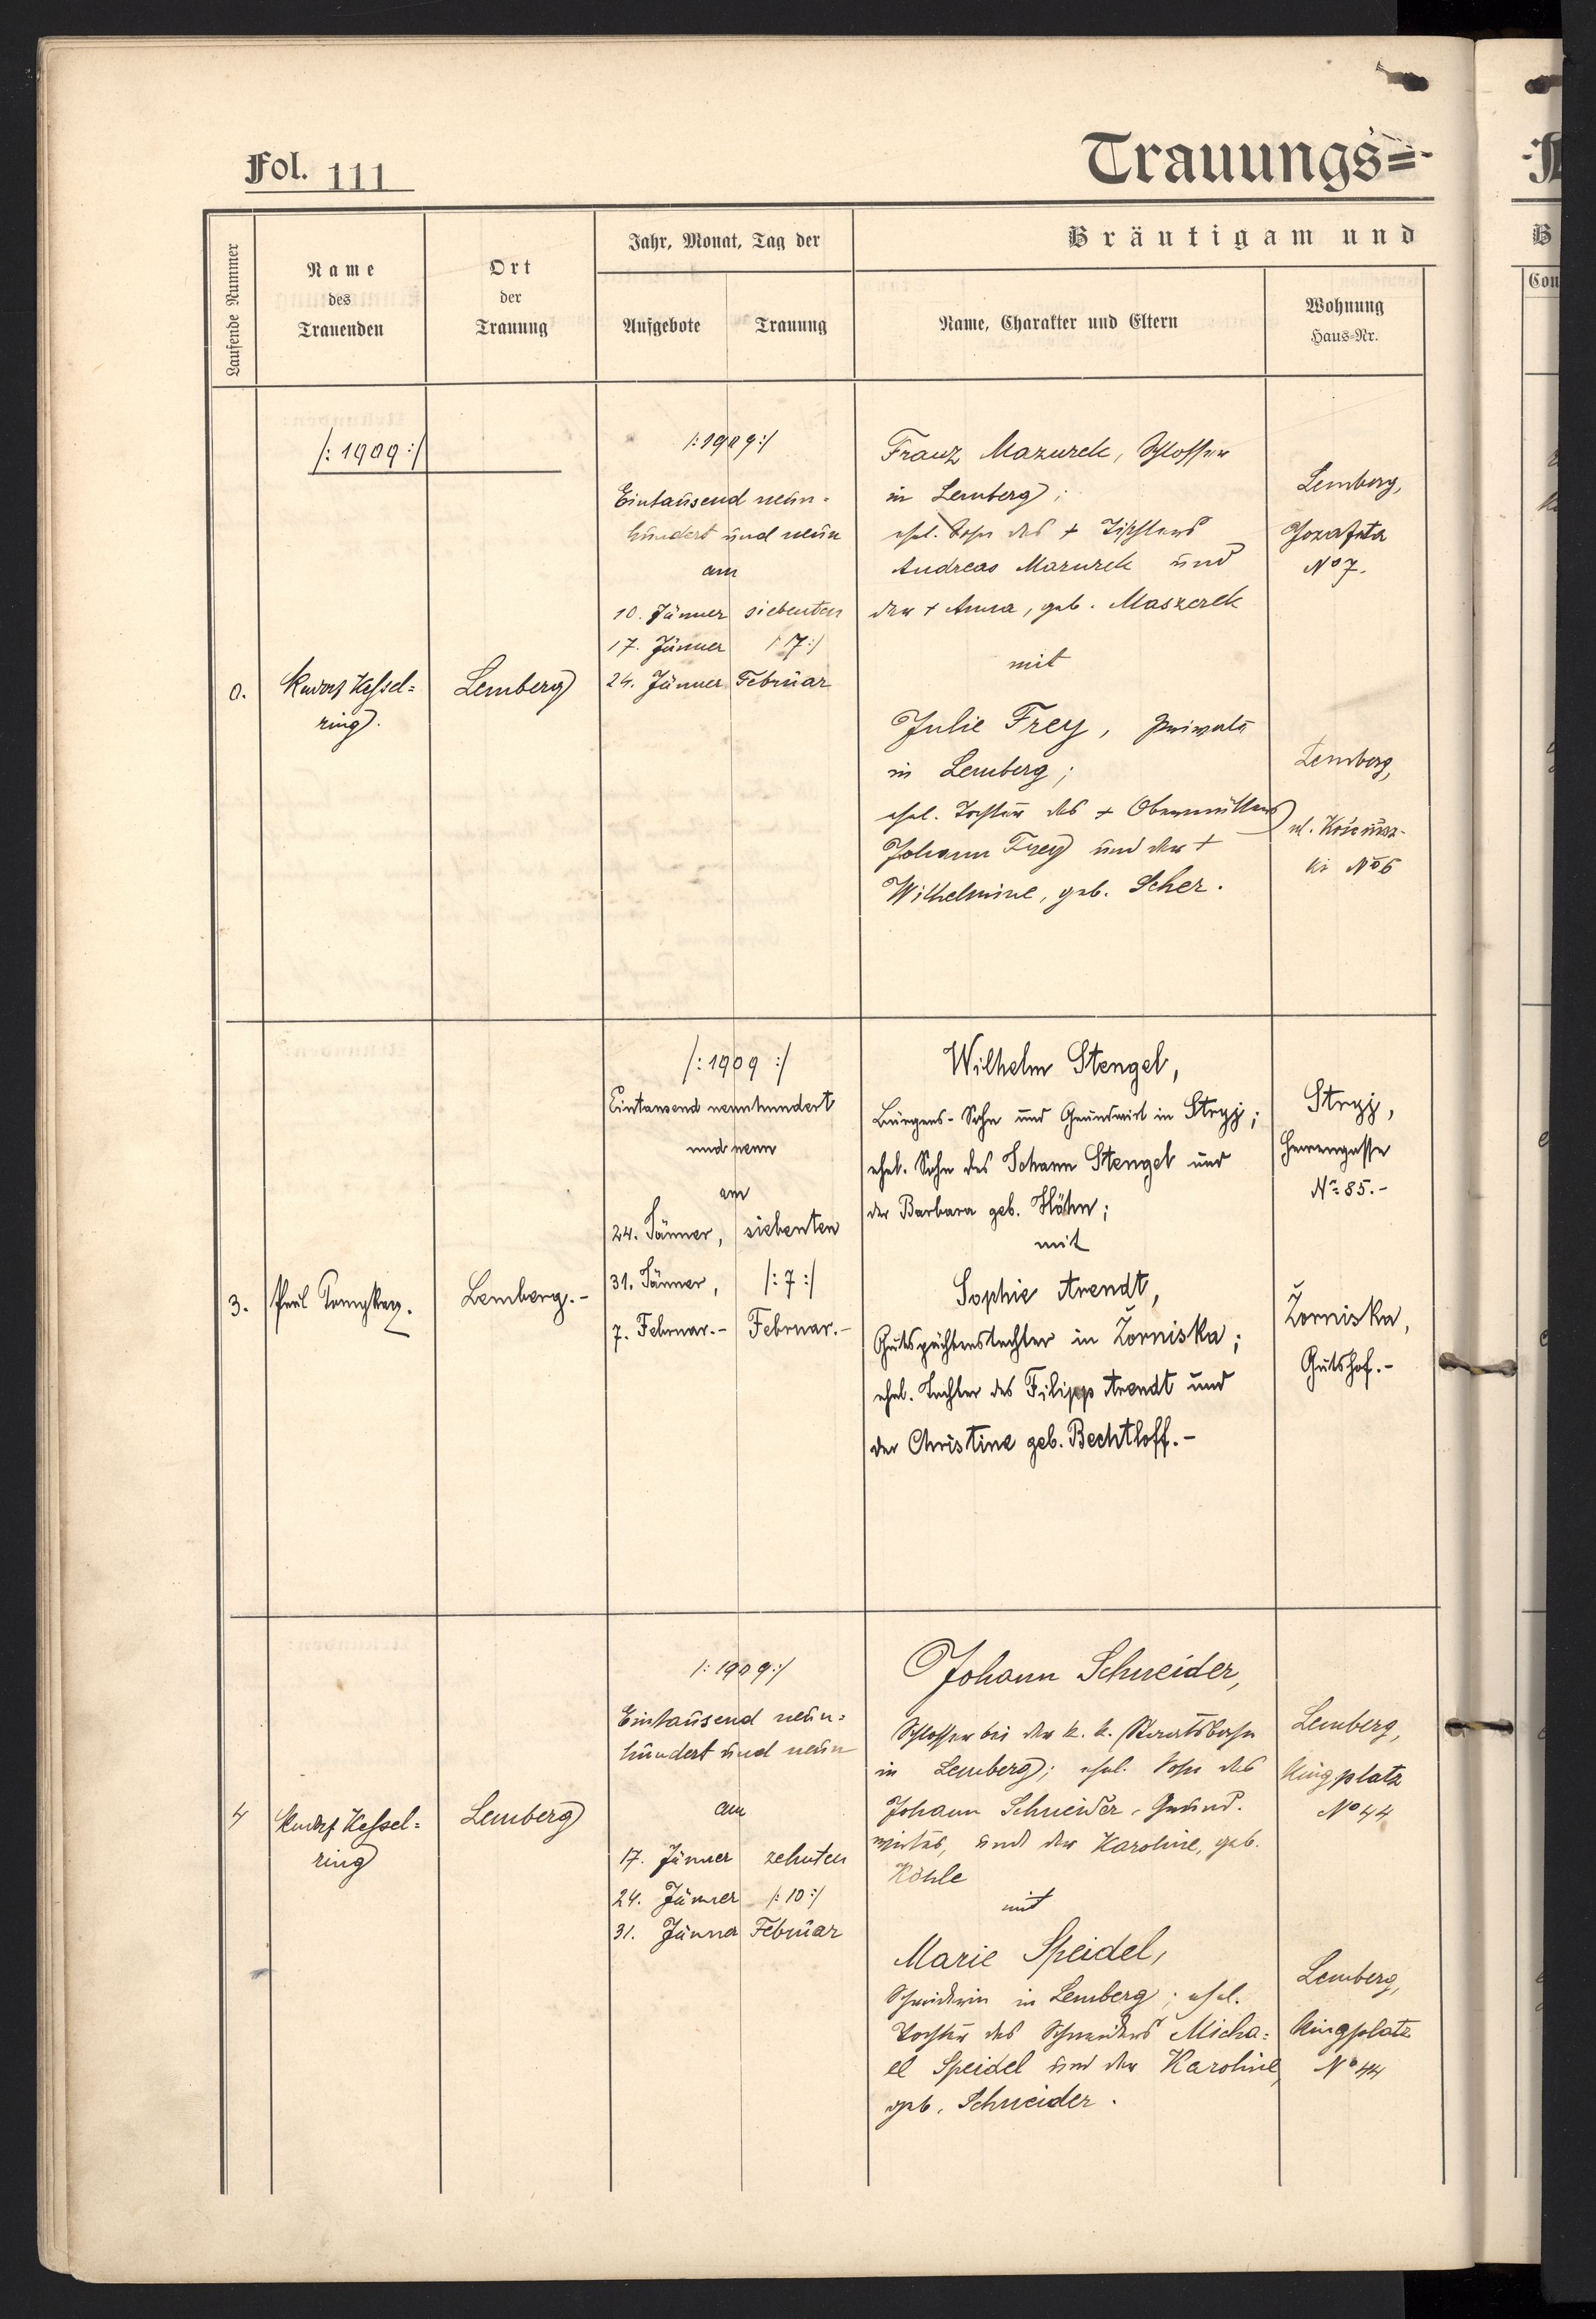 Fol. 111
Trauungs=
Laufende Nummer
Name
des
Trauenden
Ort
der
Trauung
Jahr, Monat, Tag der
Aufgebote
Trauung
Bräutigam und
Name, Charakter und Eltern
Wohnung
Haus=Nr.
/: 1909 :/
0.
Rudolf Kessel=
ring.
Lemberg
/: 1909 :/
Eintausend neun-
hundert und neun
am
10. Jänner siebenten
17. Jänner /: 7 :/
24. Jänner Februar
Franz Mazurek, Schlosser
in Lemberg;
ehel. Sohn des + Tischlers
Andreas Mazurek und
der + Anna, geb. Maszerek
mit
Julie Frey, Private
in Lemberg;
ehel. Tochter des + Obermüllers
Johann Frey und der +
Wilhelmine, geb. Scher.
Lemberg,
Jozafata
No 7.
Lemberg,
ul. Kościusz-
ki No 6
3.
Paul
Lemberg.-
/: 1909 :/
Eintausend neunhundert
und neun
am
24. Jänner, siebenten
31. Jänner, /: 7 :/
7. Februar.- Februar.-
Wilhelm Stengel,
Bürgers-Sohn und Grundwirt in Stryj;
ehel. Sohn des Johann Stengel und
der Barbara geb. Höhn;
mit
Sophie Arendt,
Gutspächterstochter in Żorniska;
ehel. Tochter des Filipp Arendt und
der Christine geb. Bechtloff.-
Stryj,
Herrengasse
No 85.-
Żorniska,
Gutshof.-
4
Rudolf Kessel=
ring
Lemberg
/: 1909 :/
Eintausend neun=
hundert und neun
am
17. Jänner zehnten
24. Jänner /: 10 :/
31. Jänner Februar
Johann Schneider,
Schlosser bei der k. k. Staatsbahn
in Lemberg; ehel. Sohn des
Johann Schneider, Grund-
wirtes, und der Karoline, geb.
Köhle
mit
Marie Speidel,
Schneiderin in Lemberg; ehel.
Tochter des Schneiders Micha=
el Speidel und der Karoline,
geb. Schneider.
Lemberg,
Ringplatz
No 44
Lemberg,
Ringplatz
No 44